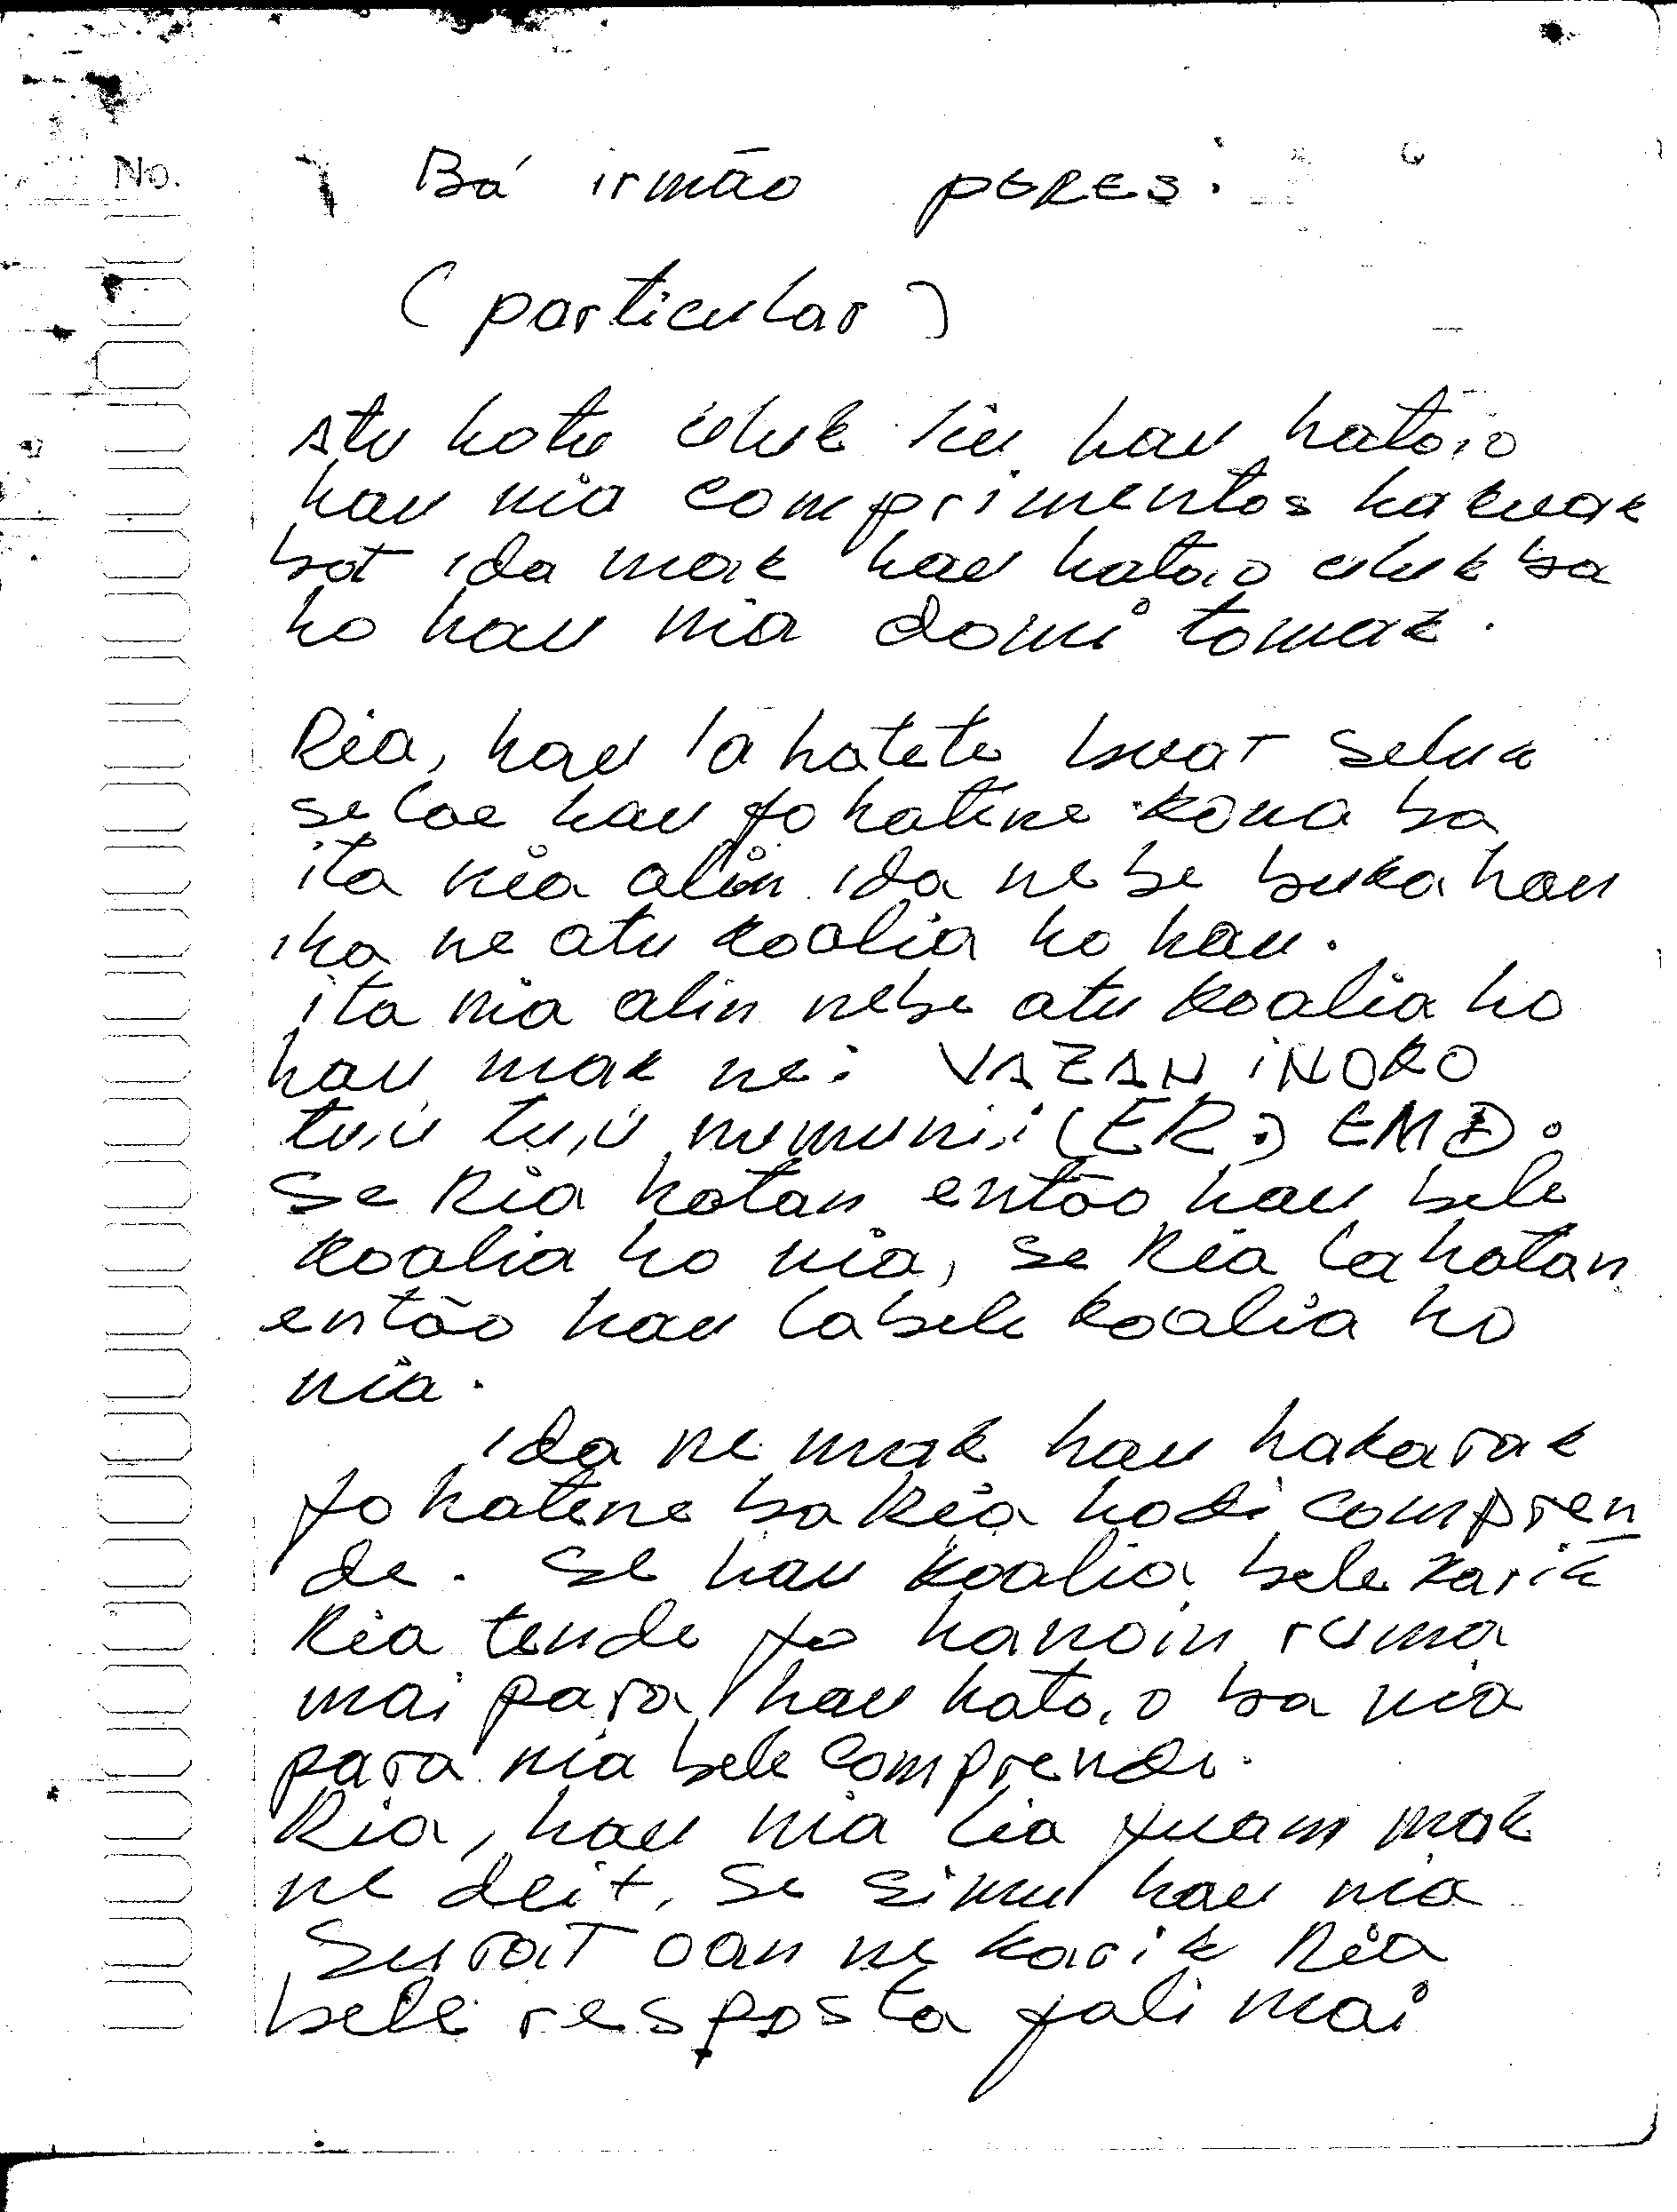 No.
Bá irmão PERES:
(particular)
Atu hotu uluk liu hau hato,o
hau nia comprimentos hakuak
bot ida mak hau hato,o uluk ba
ho hau nia domi tomak.
Ria, hau la hatete buat seluk
se lae hau fo hatene kona ba
ita nia alin ida nebe buka hau
iha ne atu koalia ho hau.
ita nia alin nebe atu koalia ho
hau mak ne: VAZAN iNORO
tu,u tu,u (ER.)
Se Ria hatan então hau bele
koalia ho nia, se Ria la hatan
então hau labele koalia ho
nia.
ida ne mak hau hakarak
fo hatene ba Ria hodi compren
de. Se hau koalia bele karik
Ria tende fo hanoin ruma
mai para hau hato,o ba nia
para nia bele comprende.
Ria, hau nia lia fuam mak
ne deit, se simu hau nia
surat oan ne karik Ria
bele resposta fali mai